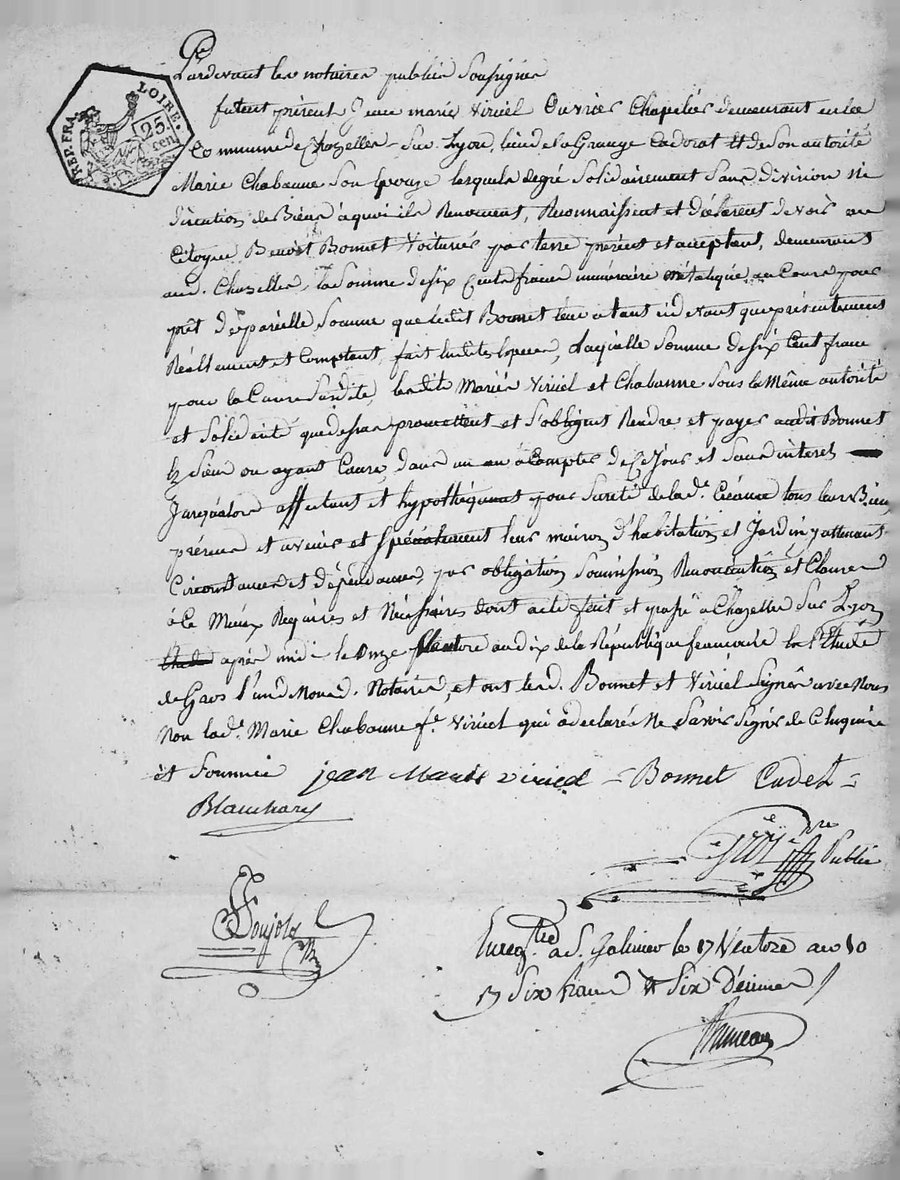 Pardevant les notaires publics soussignés
REP. FRA. LOIRE. 25 cen
furent présent Jean marie Viricel Ouvrier Chapelier demeurant en la
Commune de Chazelles Sur Lyon, lieu de la Grange Cadorat Et de Son autorité
Marie Chabanne Son Epouze lesquels de gré Solidairement Sans division Ni
de Biens à quoi ils Renoncent, Reconnaissent et déclarent devoir au
Citoyen Benoit Bonnet Voiturier par terre présent et acceptant, demeurant
aud. Chazelles, la Somme de six Cents francs numéraire métalique au Cours pour
prêt de pareille Somme que ledit Bonnet leur a tant cidevant que présentement
Réellement et Comptant, fait en dites Especes, Laquelle Somme de six Cent francs
pour la Cause Susdite, lesdits Mariés Viricel et Chabanne Sous la Même autorité
et Solidarité que dessus promettent et S'obligent Rendre et payer audit Bonnet
Sieur ou ayant Cause, dans un an à Compter de Ce Jour et Sans interet
Jusqualors affectant et hypothéquant pour Sureté de lad. Créance tous leurs Biens
présens et avenir et Spécialement leur maison D'habitation et Jardin y attenant
Circonstances et dépendances, par obligation Soumission Renonciation et Clauses
à Ce Mieux Requises et Nécéssaires dont acte fait et passé à Chazelles Sur Lyon
après midi le Onze Ventose an dix de la République francaise En l'Etude
de Gros l'un desd. Notaires, et ont lesd. Bonnet et Viricel Signés avec Nous
Non lad. Marie Chabanne fe. Viricel qui a declaré Ne Savoir Signer de Ce Enquise
et Sommée jean Marie viricel = Bonnet Cadet =
Blanchard
Public
Enreg.tré a S. Galmier le 17 Ventose an 10
Six francs Six Décimes